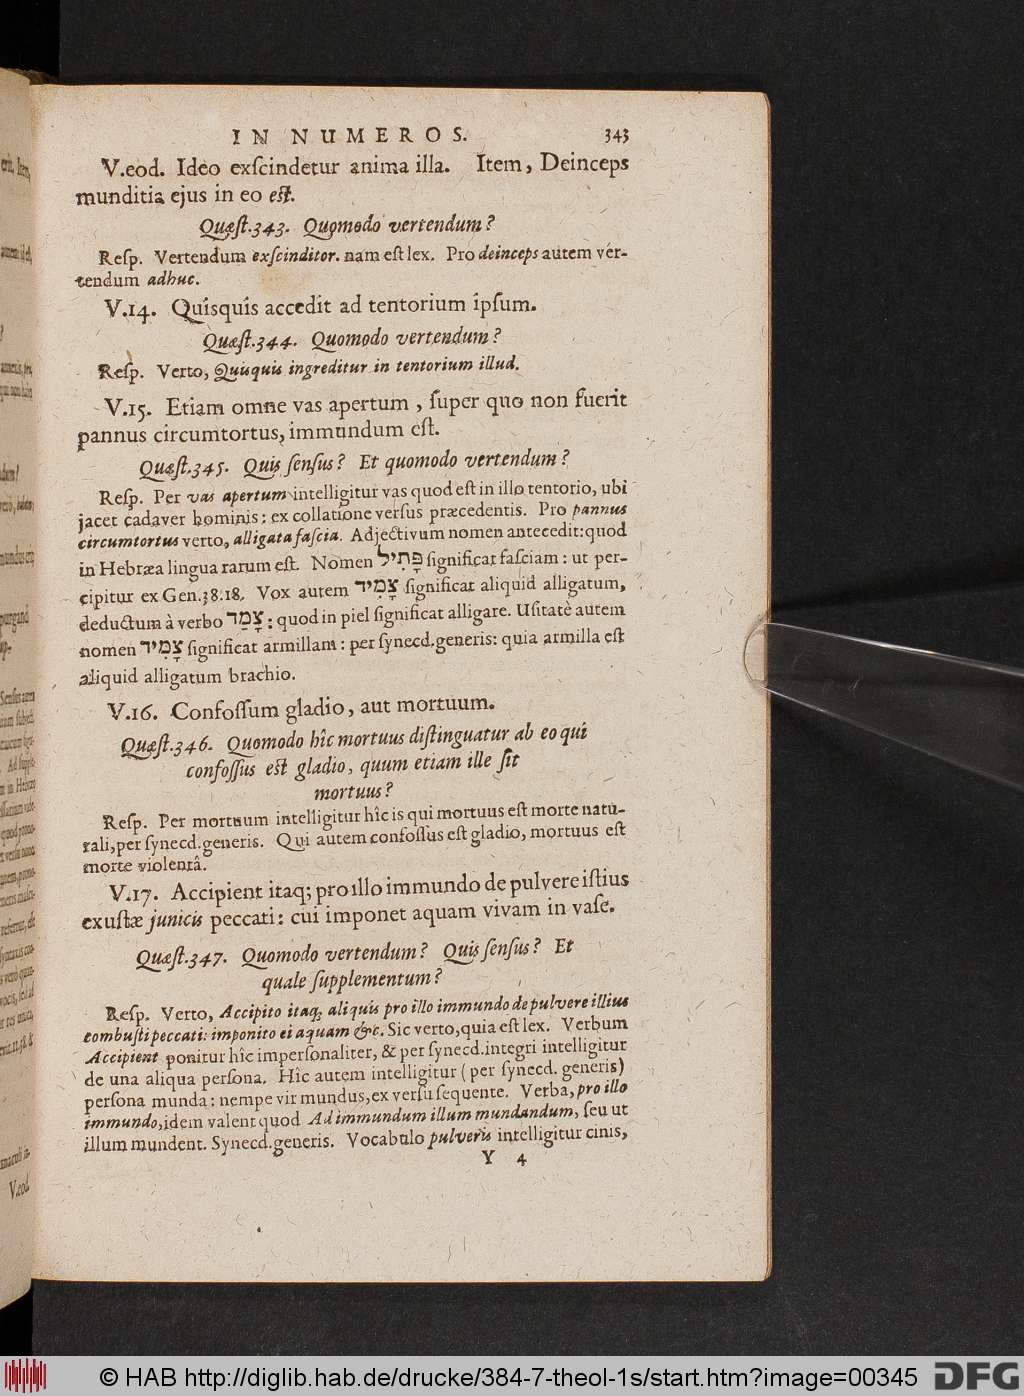 IN NUMEROS. 343
V.eod. Ideo exſcindetur anima illa. Item, Deinceps
munditia ejus in eo est.
Quæſt.343. Quomodo vertendum?
Reſp. Vertendum exſcinditor. nam eſt lex. Pro deinceps autem ver-
tendum adhuc.
V.14. Quîsquîs accedit ad tentorium îpſum.
Quæſt.344. Quomodo vertendum?
Reſp. Verto, Quisquis ingreditur in tentorium illud.
V.15. Etiam omne vas apertum, ſuper quo non fuerit
pannus circumtortus, immundum eſt.
Quæſt.345. Quis ſenſus? Et quomodo vertendum?
Reſp. Per vas apertum intelligitur vas quod eſt in illo tentorio, ubi
jacet cadaver hominis: ex collatione verſus præcedentis. Pro pannus
circumtortus verto, alligata faſcia. Adjectivum nomen antecedit: quod
in Hebræa lingua rarum eſt. Nomen פָּתִיל ſignificat faſciam: ut per-
cipitur ex Gen.38.18. Vox autem צָמִיד ſignificat aliquid alligatum,
deductum à verbo צָמַד: quod in piel ſignificat alligare. Uſitatè autem
nomen צָמִיד ſignificat armillam: per ſynecd.generis: quia armilla eſt
aliquid alligatum brachio.
V.16. Confoſſum gladio, aut mortuum.
Quæſt.346. Quomodo hîc mortuus diſtinguatur ab eo qui
confoſſus est gladio, quum etiam ille ſit
mortuus?
Reſp. Per mortuum intelligitur hîc is qui mortuus eſt morte natu-
rali, per ſynecd.generis. Qui autem confoſſus eſt gladio, mortuus eſt
morte violentâ.
V.17. Accipient itaq; pro illo immundo de pulvere iſtius
exuſtæ junicis peccati: cui imponet aquam vivam in vaſe.
Quæſt.347. Quomodo vertendum? Quis ſenſus? Et
quale ſupplementum?
Reſp. Verto, Accipito itaq; aliquis pro illo immundo de pulvere illius
combuſti peccati: imponito ei aquam &c. Sic verto, quia eſt lex. Verbum
Accipient ponitur hîc imperſonaliter, & per ſynecd.integri intelligitur
de una aliqua perſona. Hîc autem intelligitur (per ſynecd. generis)
perſona munda: nempe vir mundus, ex verſu ſequente. Verba, pro illo
immundo, idem valent quod Ad immundum illum mundandum, ſeu ut
illum mundent. Synecd.generis. Vocabulo pulveris intelligitur cinis,
Y 4
© HAB http://diglib.hab.de/drucke/384-7-theol-1s/start.htm?image=00345
DFG